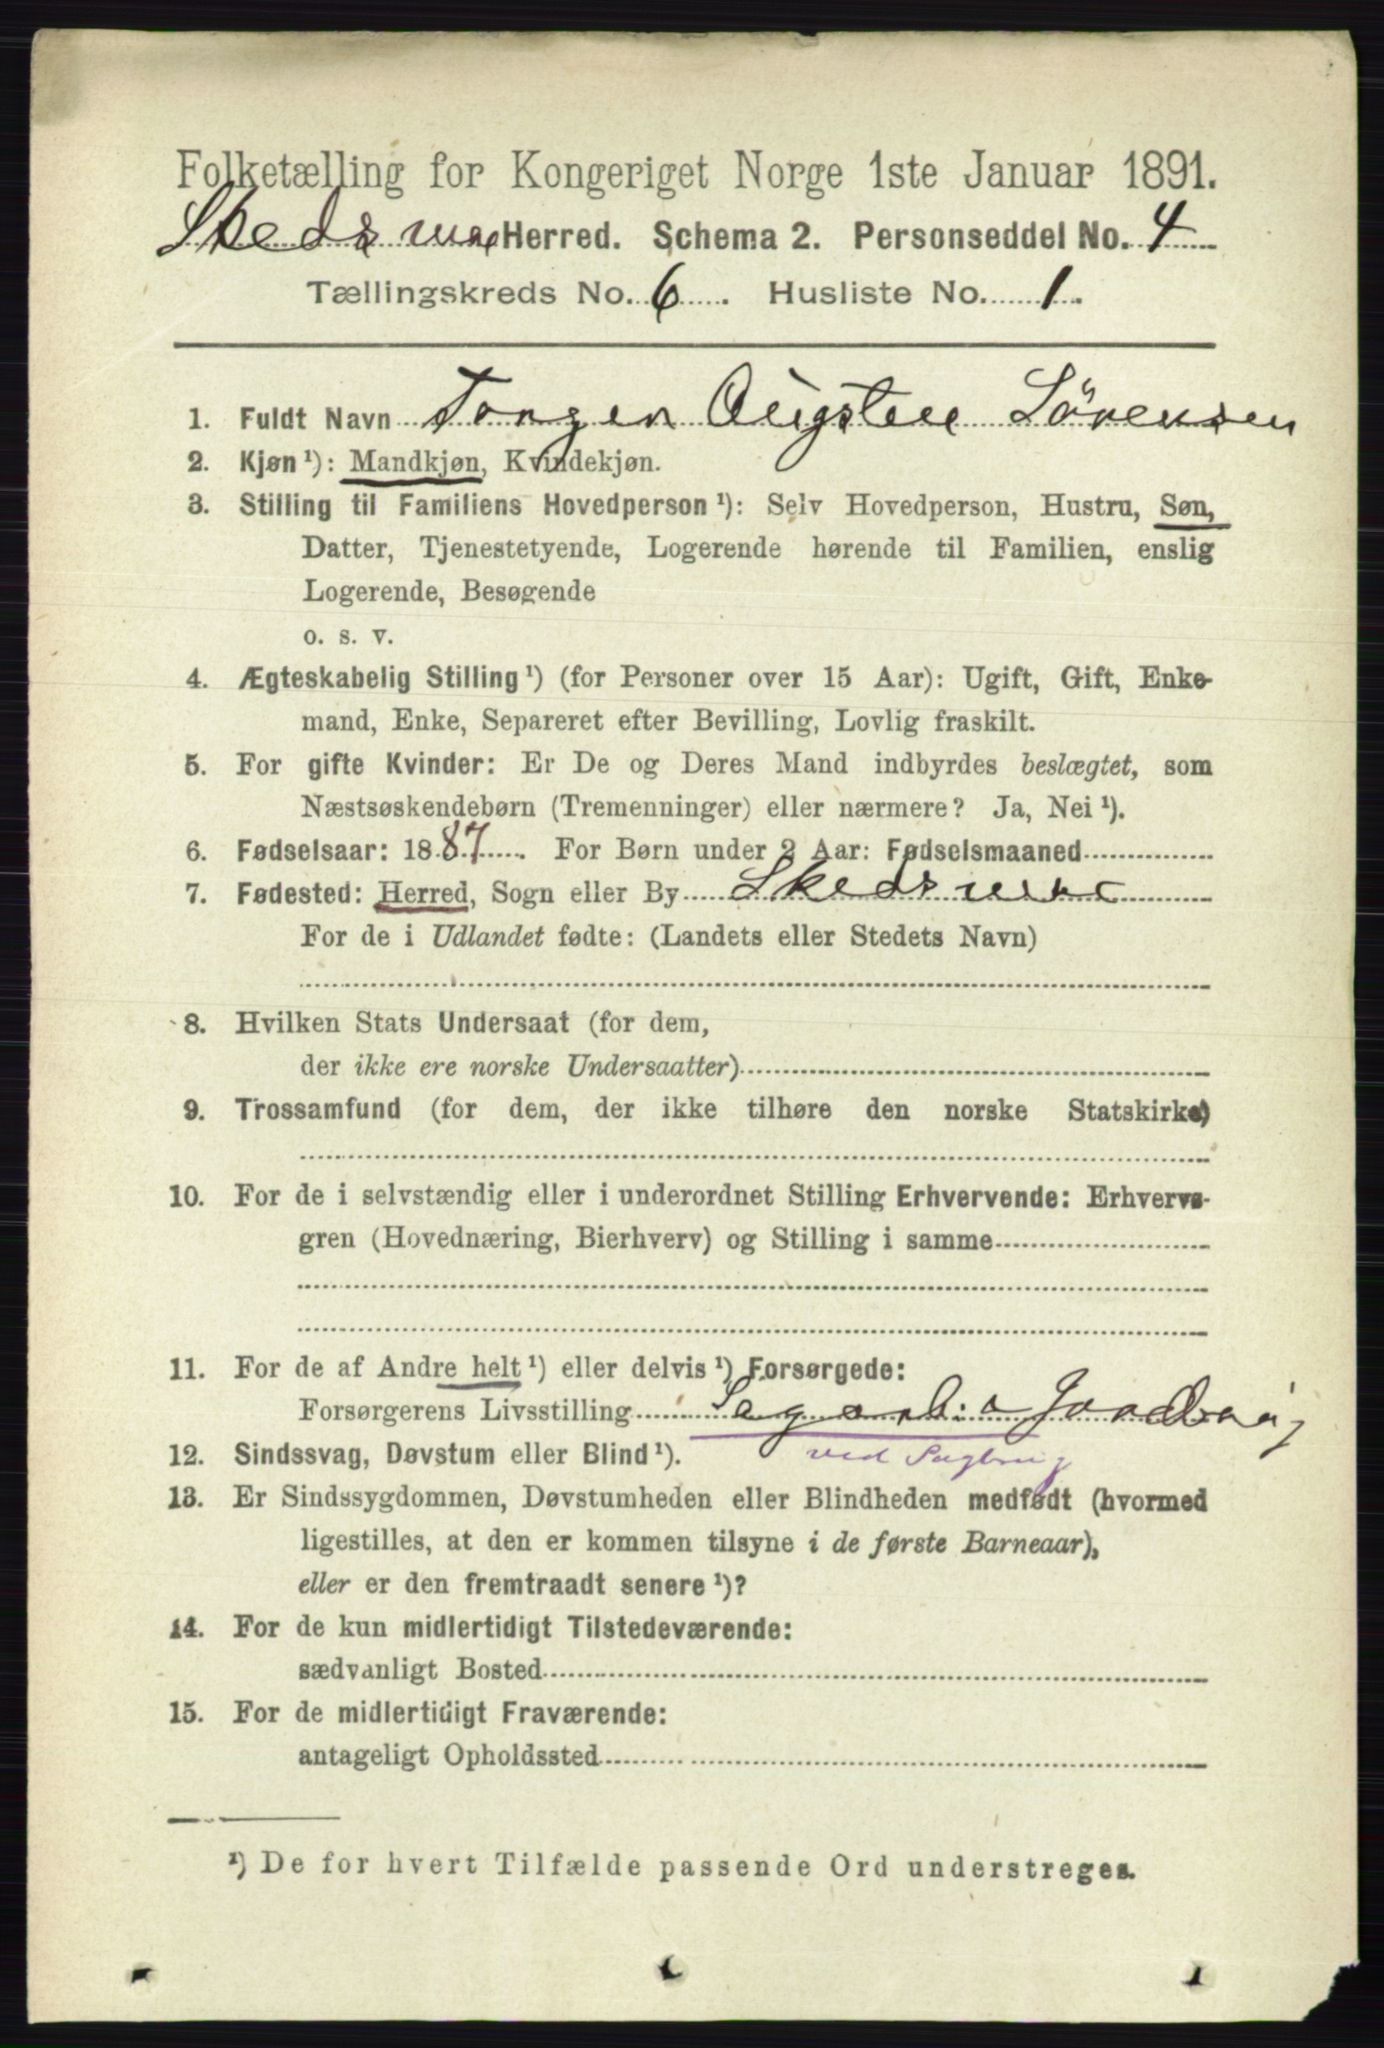 Folketælling for Kongeriget Norge 1ste Januar 1891.
Skedsmo Herred. Schema 2. Personseddel No. 4
Tællingskreds No. 6. Husliste No. 1.
1. Fuldt Navn Torger Sörensen
2. Kjøn ¹): Mandkjøn, Kvindekjøn.
3. Stilling til Familiens Hovedperson ¹): Selv Hovedperson, Hustru, Søn,
Datter, Tjenestetyende, Logerende hørende til Familien, enslig
Logerende, Besøgende
o. s. v.
4. Ægteskabelig Stilling ¹) (for Personer over 15 Aar): Ugift, Gift, Enke-
mand, Enke, Separeret efter Bevilling, Lovlig fraskilt.
5. For gifte Kvinder: Er De og Deres Mand indbyrdes beslægtet, som
Næstsøskendebørn (Tremenninger) eller nærmere? Ja, Nei ¹).
6. Fødselsaar: 1887. For Børn under 2 Aar: Fødselsmaaned
7. Fødested: Herred, Sogn eller By Skedsmo
For de i Udlandet fødte: (Landets eller Stedets Navn)
8. Hvilken Stats Undersaat (for dem,
der ikke ere norske Undersaatter)
9. Trossamfund (for dem, der ikke tilhøre den norske Statskirke)
10. For de i selvstændig eller i underordnet Stilling Erhvervende: Erhvervs-
gren (Hovednæring, Bierhverv) og Stilling i samme
11. For de af Andre helt ¹) eller delvis ¹) Forsørgede:
Forsørgerens Livsstilling Sagarb: o Jordbrug
12. Sindssvag, Døvstum eller Blind ¹). ved Sagbrug
13. Er Sindssygdommen, Døvstumheden eller Blindheden medfødt (hvormed
ligestilles, at den er kommen tilsyne i de første Barneaar),
eller er den fremtraadt senere ¹)?
14. For de kun midlertidigt Tilstedeværende:
sædvanligt Bosted
15. For de midlertidigt Fraværende:
antageligt Opholdssted
¹) De for hvert Tilfælde passende Ord understreges.